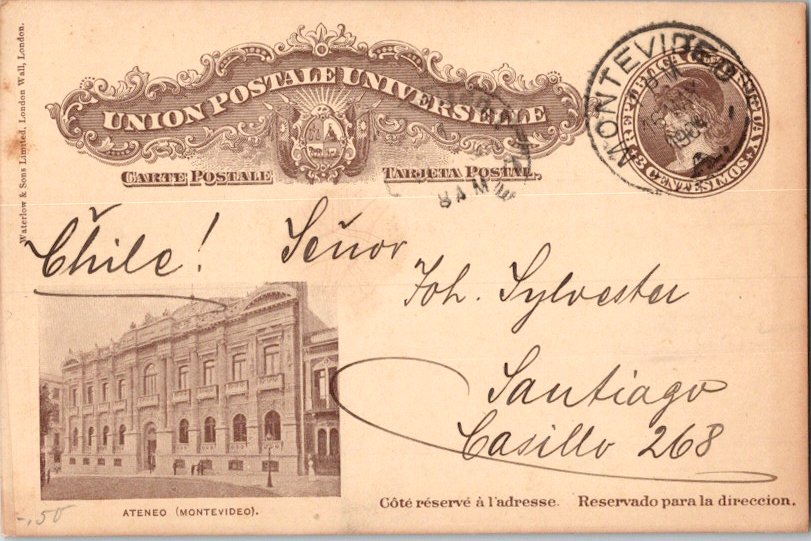 Waterlow & Sons Limited, London Wall, London.
UNION POSTALE UNIVERSELLE
CARTE POSTALE TARJETA POSTAL.
MONTEVIDEO
REPUBLICA
3 CENTESIMOS
8 AM
Chile! Señor
Joh. Sylvester
Santiago
Casillo 268
ATENEO (MONTEVIDEO).
Côté réservé à l'adresse. Reservado para la direccion.
-.50